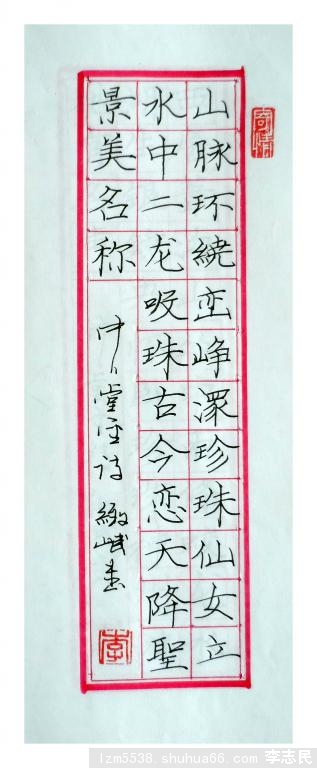 山脉环繞峦峥深珍珠仙女立
水中二龙吸珠古今恋天降聖
景美名称
奇情
lzm5538.shuhua66.com 李志民